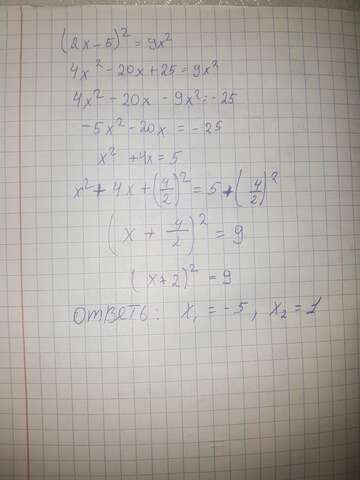 (2x-5)² = 9x²
4x² - 20x + 25 = 9x²
4x² - 20x - 9x² = -25
-5x² - 20x = -25
x² + 4x = 5
x² + 4x + (4/2)² = 5 + (4/2)²
(x + 4/2)² = 9
(x+2)² = 9
ответь: x₁ = -5, x₂ = 1